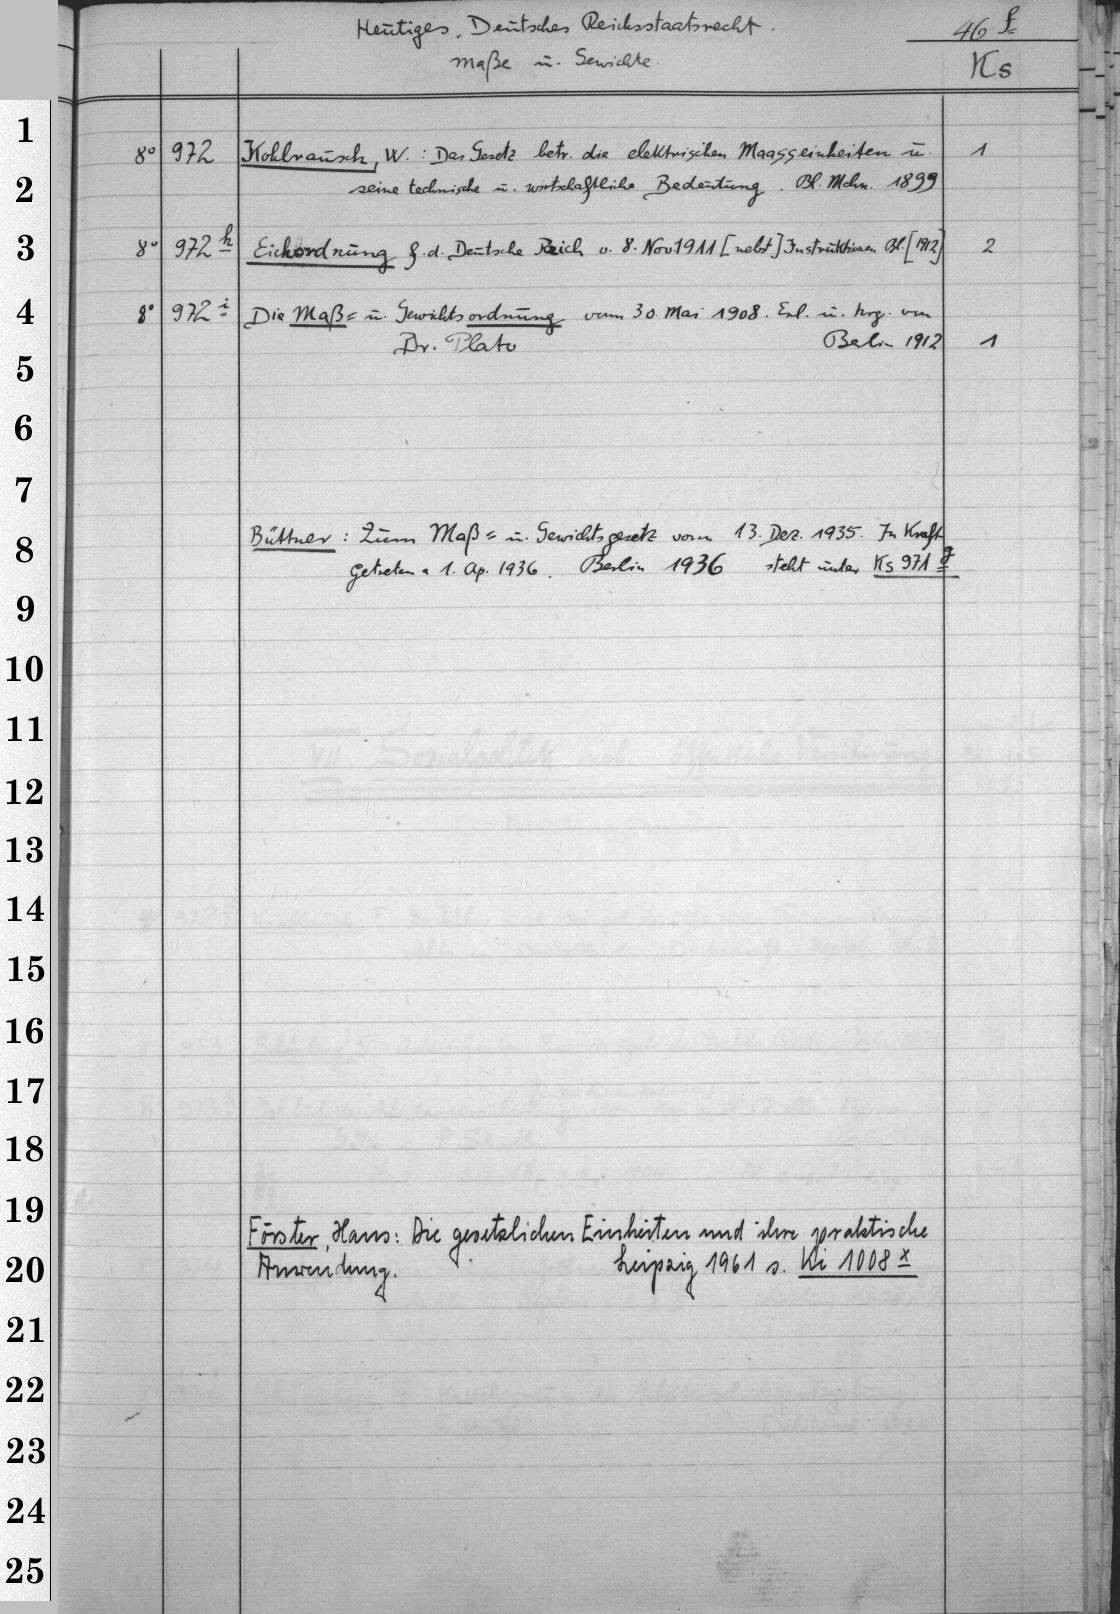 Heutiges, Deutsches Reichsstaatsrecht. 46 f
Maße u. Gewichte. Ks
1
8° 972 Kohlrausch, W. : Das Gesetz betr. die elektrischen Maasseinheiten u. 1
2
seine technische u. wirtschaftliche Bedeutung. Bl. Mchn. 1899
3
8° 972 h Eichordnung f. d. Deutsche Reich v. 8. Nov 1911 [nebst] Instruktionen Bl. [1912] 2
4
8° 972 i Die Maß= u. Gewichtsordnung vom 30. Mai 1908. Erl. u. hrg. von
Dr. Plato Berlin 1912 1
5
6
7
8
Büttner : Zum Maß= u. Gewichtsgesetz vom 13. Dez. 1935. In Kraft
getreten a 1. Ap. 1936. Berlin 1936 steht unter Ks 971 g
9
10
11
12
13
14
15
16
17
18
19
Förster, Hans: Die gesetzlichen Einheiten und ihre praktische
20
Anwendung. Leipzig 1961 s. Ki 1008 x
21
22
23
24
25